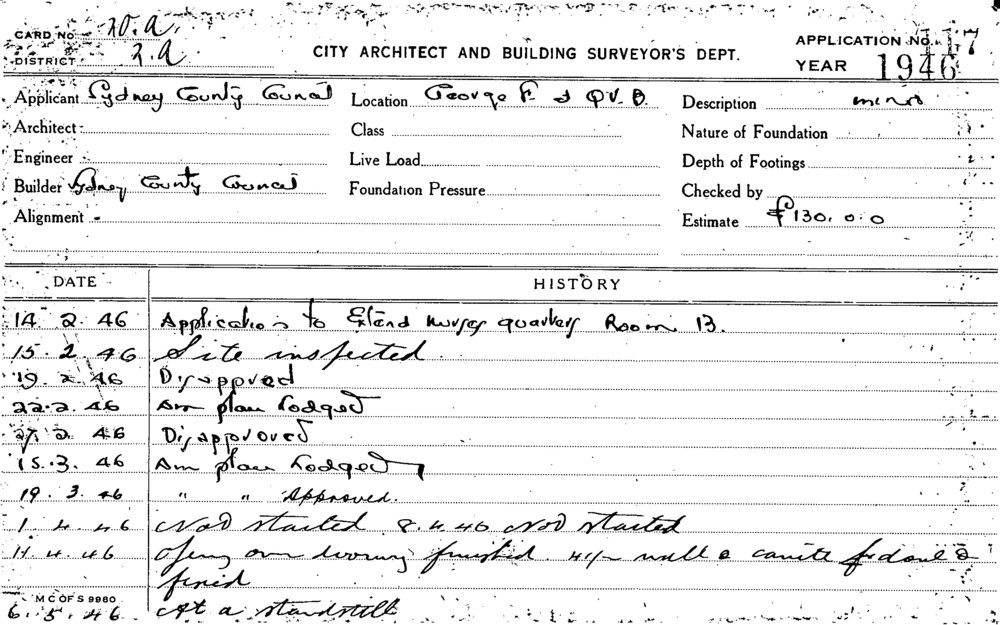 CARD No 20.A.
DISTRICT 2.A
CITY ARCHITECT AND BUILDING SURVEYOR'S DEPT.
APPLICATION No. 117
YEAR 1946
Applicant Sydney County Council Location George St & QV.B. Description minor
Architect Class Nature of Foundation
Engineer Live Load Depth of Footings
Builder Sydney County Council Foundation Pressure Checked by
Alignment - Estimate £130.0.0
DATE HISTORY
14 2. 46 Application to Extend nurses quarters Room 13.
15. 2. 46 Site inspected
19. 2. 46 Disapproved
22.2. 46 Am plan Lodged
27. 2. 46 Disapproved
15.3. 46 Am plan Lodged
19. 3. 46 " " Approved.
1. 4. 46 Not started 8.4.46 Not started
11.4.46 finished
fixed
M C OF S 9960
6. 5. 46 At a standstill